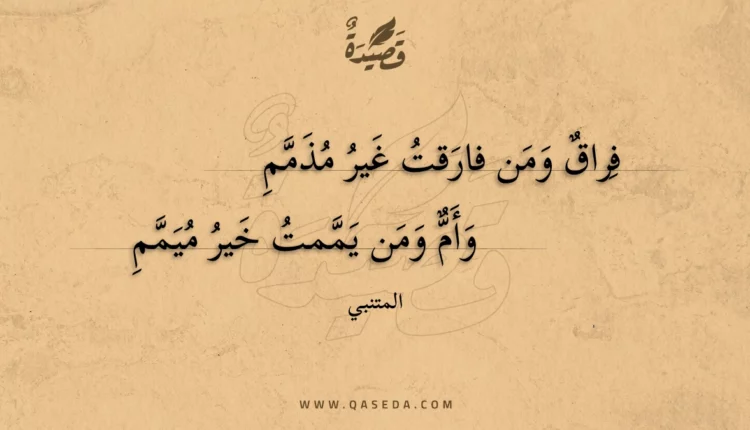 قَصِيدَةٌ
فِراقٌ وَمَن فارَقتُ غَيرُ مُذَمَّمِ
وَأَمٌّ وَمَن يَمَّمتُ خَيرُ مُيَمَّمِ
المتنبي
WWW.QASEDA.COM